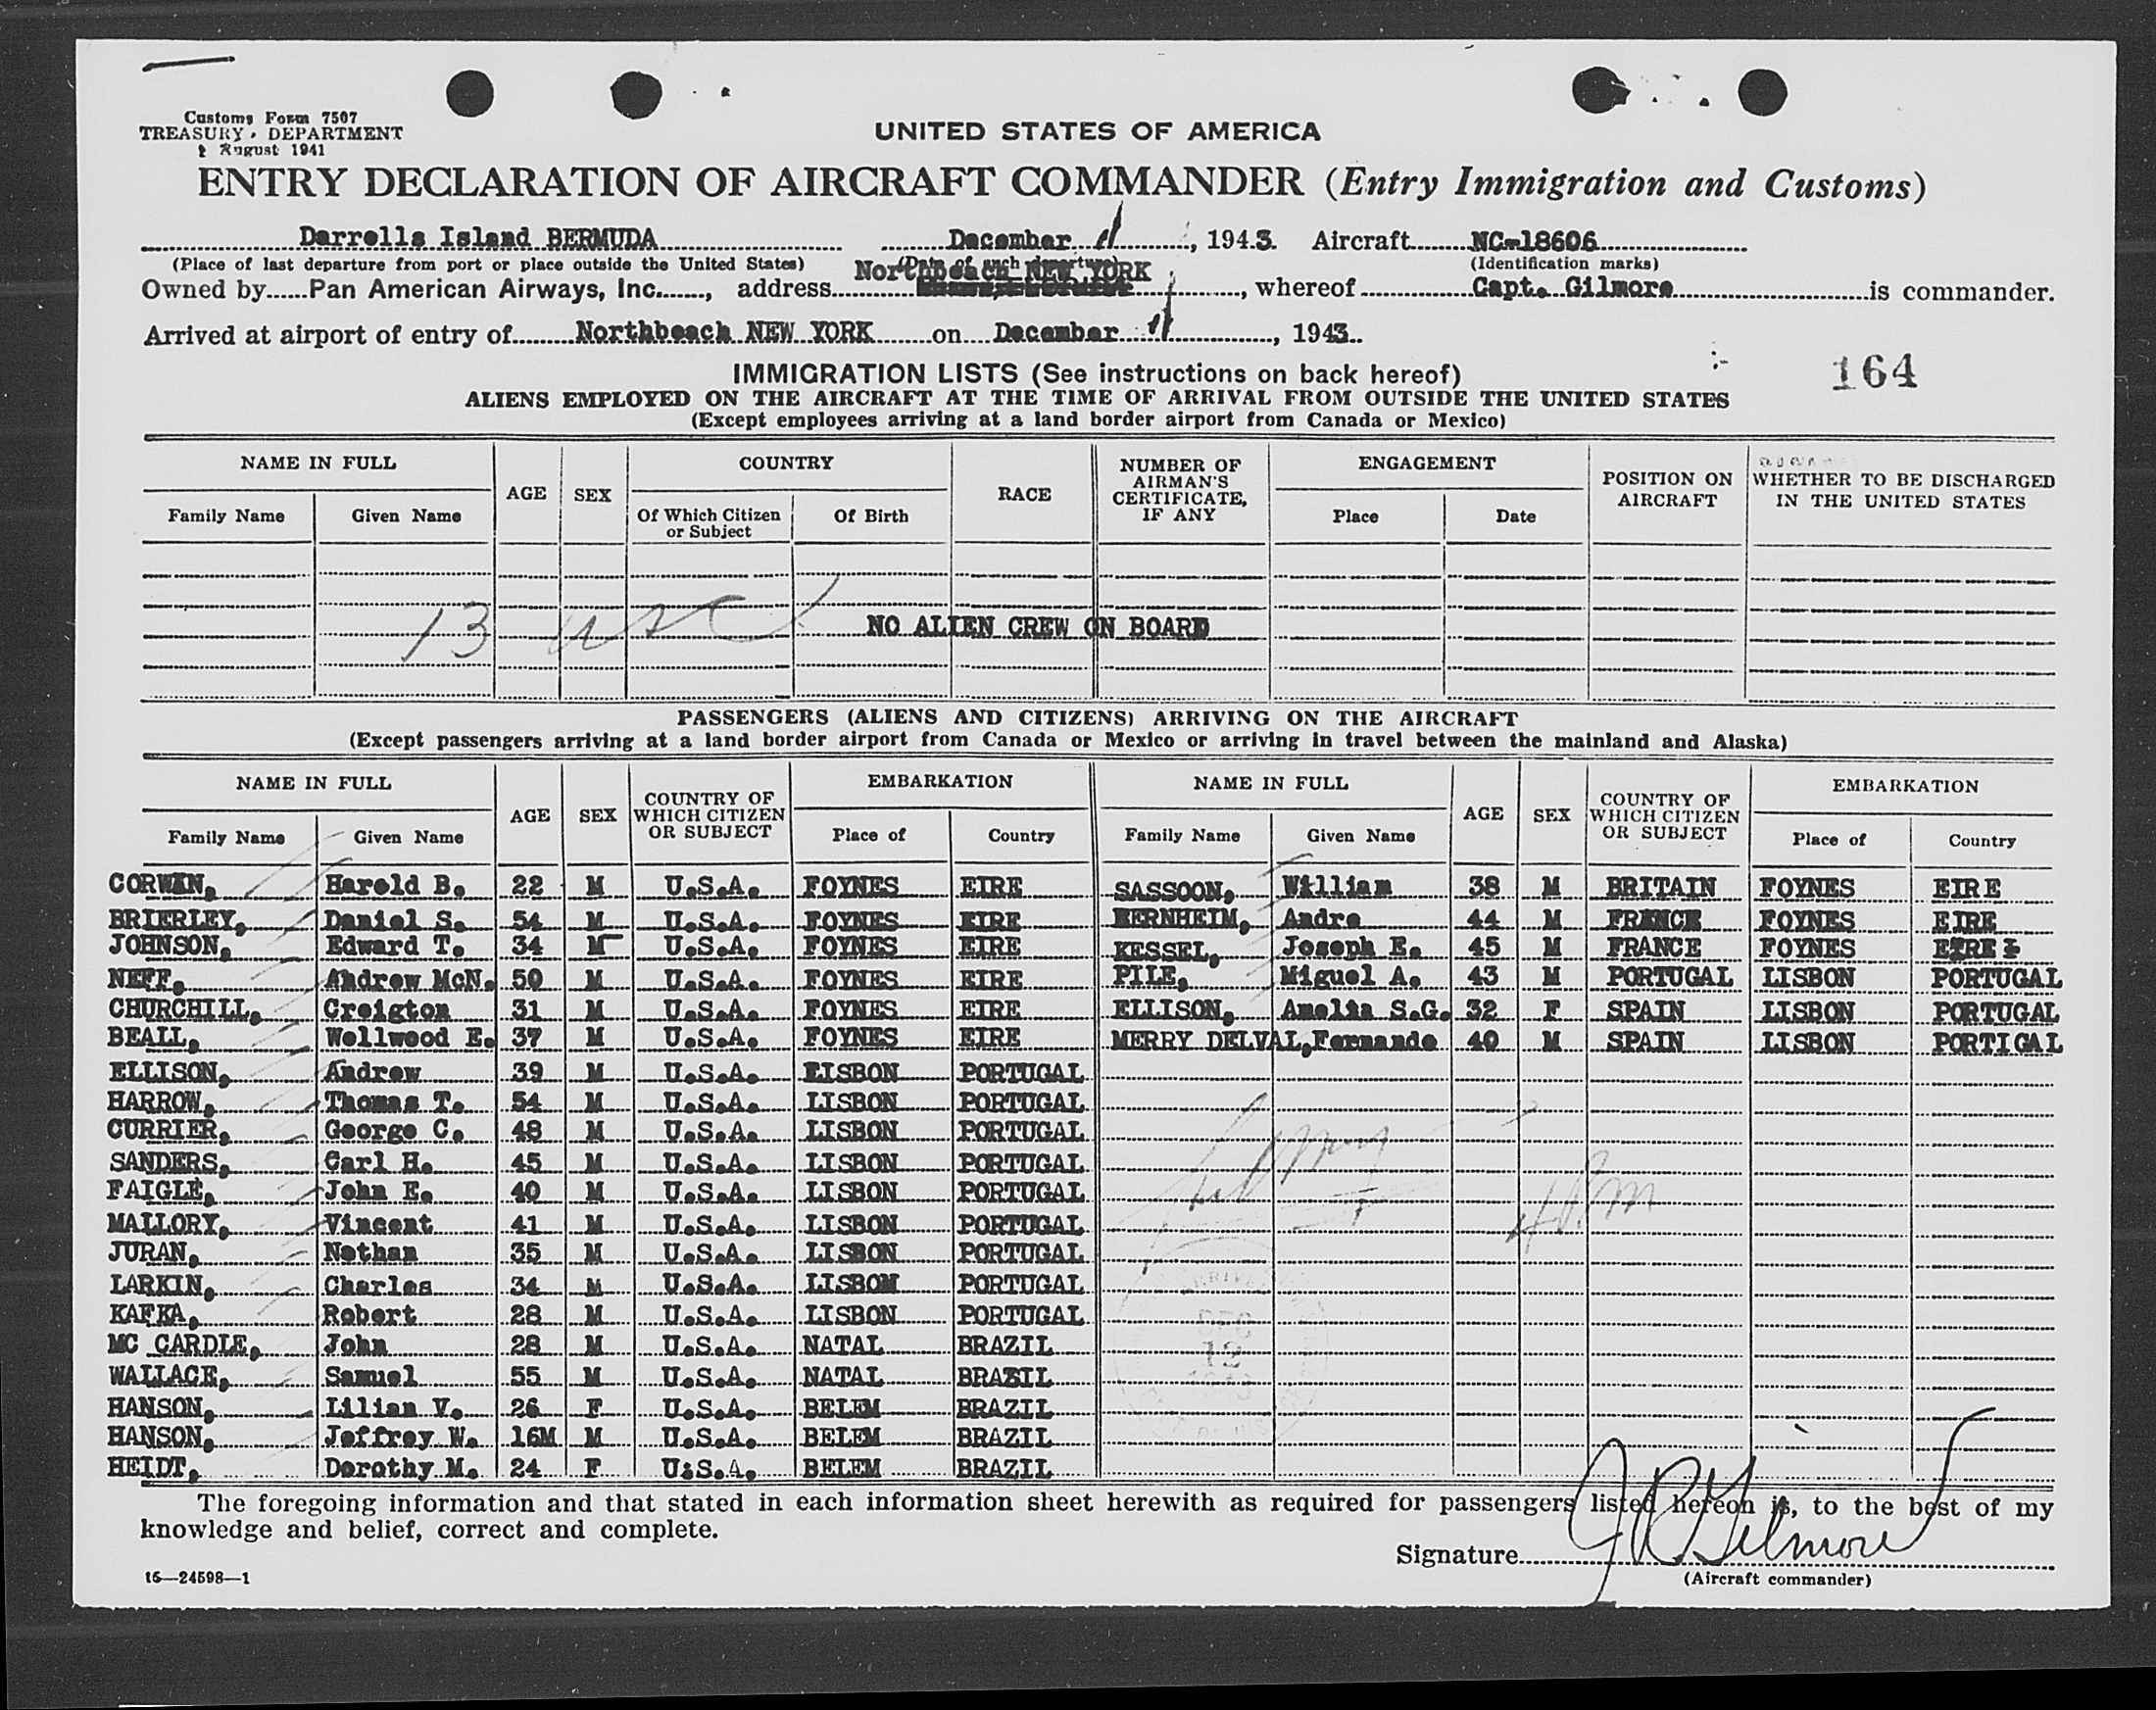 Customs Form 7507
TREASURY DEPARTMENT
August 1941
UNITED STATES OF AMERICA
ENTRY DECLARATION OF AIRCRAFT COMMANDER (Entry Immigration and Customs)
Darrells Island BERMUDA December 11, 1943. Aircraft NC-18606
(Place of last departure from port or place outside the United States) (Date of such departure) (Identification marks)
Northbeach NEW YORK
Owned by Pan American Airways, Inc., address, whereof Capt. Gilmore is commander.
Arrived at airport of entry of Northbeach NEW YORK on December 11, 1943.
IMMIGRATION LISTS (See instructions on back hereof) 164
ALIENS EMPLOYED ON THE AIRCRAFT AT THE TIME OF ARRIVAL FROM OUTSIDE THE UNITED STATES
(Except employees arriving at a land border airport from Canada or Mexico)
NAME IN FULL AGE SEX COUNTRY RACE NUMBER OF AIRMAN'S CERTIFICATE, IF ANY ENGAGEMENT POSITION ON AIRCRAFT WHETHER TO BE DISCHARGED IN THE UNITED STATES
Family Name Given Name Of Which Citizen or Subject Of Birth Place Date
13 usc
NO ALIEN CREW ON BOARD
PASSENGERS (ALIENS AND CITIZENS) ARRIVING ON THE AIRCRAFT
(Except passengers arriving at a land border airport from Canada or Mexico or arriving in travel between the mainland and Alaska)
NAME IN FULL AGE SEX COUNTRY OF WHICH CITIZEN OR SUBJECT EMBARKATION NAME IN FULL AGE SEX COUNTRY OF WHICH CITIZEN OR SUBJECT EMBARKATION
Family Name Given Name Place of Country Family Name Given Name Place of Country
CORWIN, Harold B. 22 M U.S.A. FOYNES EIRE SASSOON, William 38 M BRITAIN FOYNES EIRE
BRIERLEY, Daniel S. 54 M U.S.A. FOYNES EIRE BERNHEIM, Andre 44 M FRANCE FOYNES EIRE
JOHNSON, Edward T. 34 M U.S.A. FOYNES EIRE KESSEL, Joseph E. 45 M FRANCE FOYNES EIRE
NEFF, Andrew McN. 50 M U.S.A. FOYNES EIRE PILE, Miguel A. 43 M PORTUGAL LISBON PORTUGAL
CHURCHILL, Creigton 31 M U.S.A. FOYNES EIRE ELLISON, Amelia S.G. 32 F SPAIN LISBON PORTUGAL
BEALL, Wellwood E. 37 M U.S.A. FOYNES EIRE MERRY DELVAL, Fernando 40 M SPAIN LISBON PORTIGAL
ELLISON, Andrew 39 M U.S.A. LISBON PORTUGAL
HARROW, Thomas T. 54 M U.S.A. LISBON PORTUGAL
CURRIER, George C. 48 M U.S.A. LISBON PORTUGAL
SANDERS, Carl H. 45 M U.S.A. LISBON PORTUGAL
FAIGLE, John E. 40 M U.S.A. LISBON PORTUGAL
MALLORY, Vincent 41 M U.S.A. LISBON PORTUGAL
JURAN, Nathan 35 M U.S.A. LISBON PORTUGAL
LARKIN, Charles 34 M U.S.A. LISBON PORTUGAL
KAFKA, Robert 28 M U.S.A. LISBON PORTUGAL
MC CARDLE, John 28 M U.S.A. NATAL BRAZIL
WALLACE, Samuel 55 M U.S.A. NATAL BRAZIL
HANSON, Lilian V. 26 F U.S.A. BELEM BRAZIL
HANSON, Jeffrey W. 16M M U.S.A. BELEM BRAZIL
HEIDT, Dorothy M. 24 F U.S.A. BELEM BRAZIL
DEC
12
The foregoing information and that stated in each information sheet herewith as required for passengers listed hereon is, to the best of my
knowledge and belief, correct and complete.
Signature JR Gilmore
(Aircraft commander)
16—24598—1